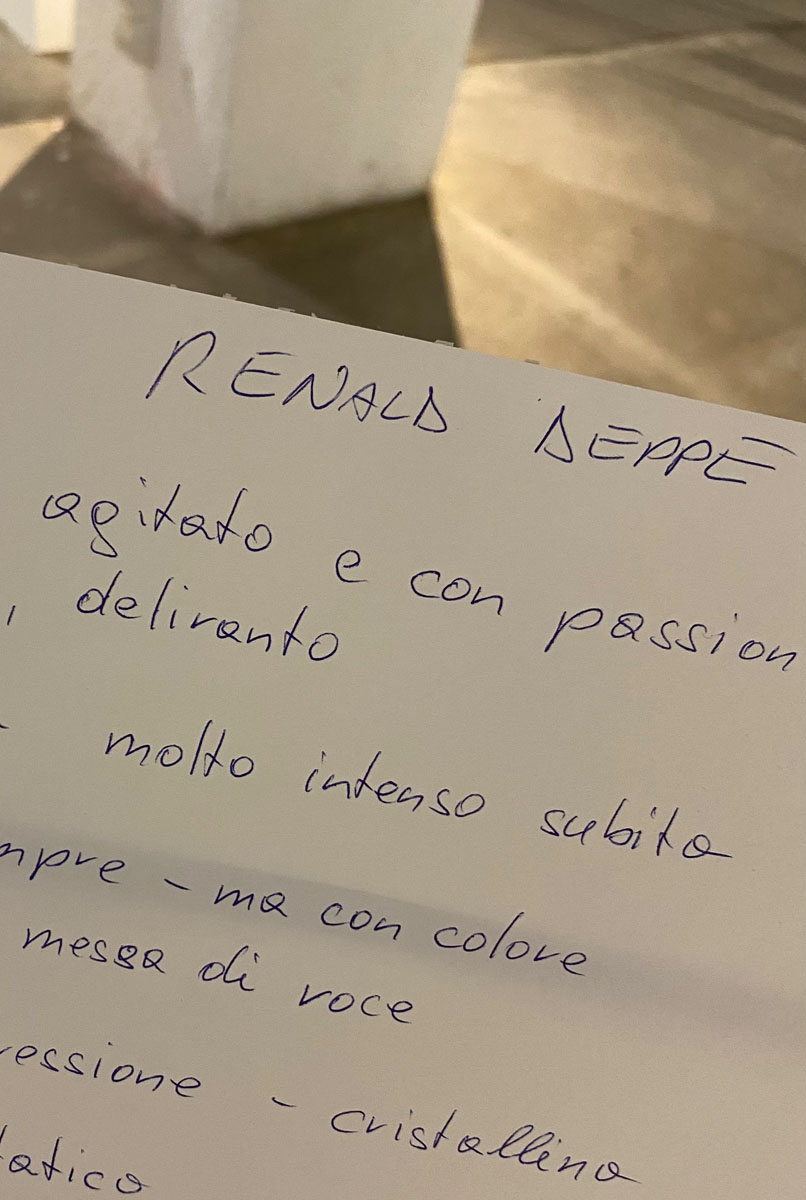 RENALD DEPPE
agitato e con passion
, deliranto
- molto intenso subito
mpre - ma con colore
messa di voce
ressione - cristallino
tatico